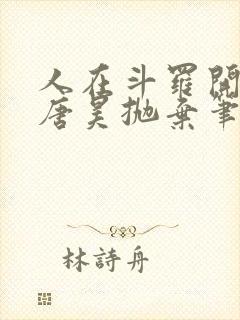 人在斗羅開
唐昊拋棄筆
林詩舟